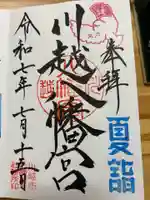 奉拝
川越八幡宮
令和七年七月十五日
夏詣